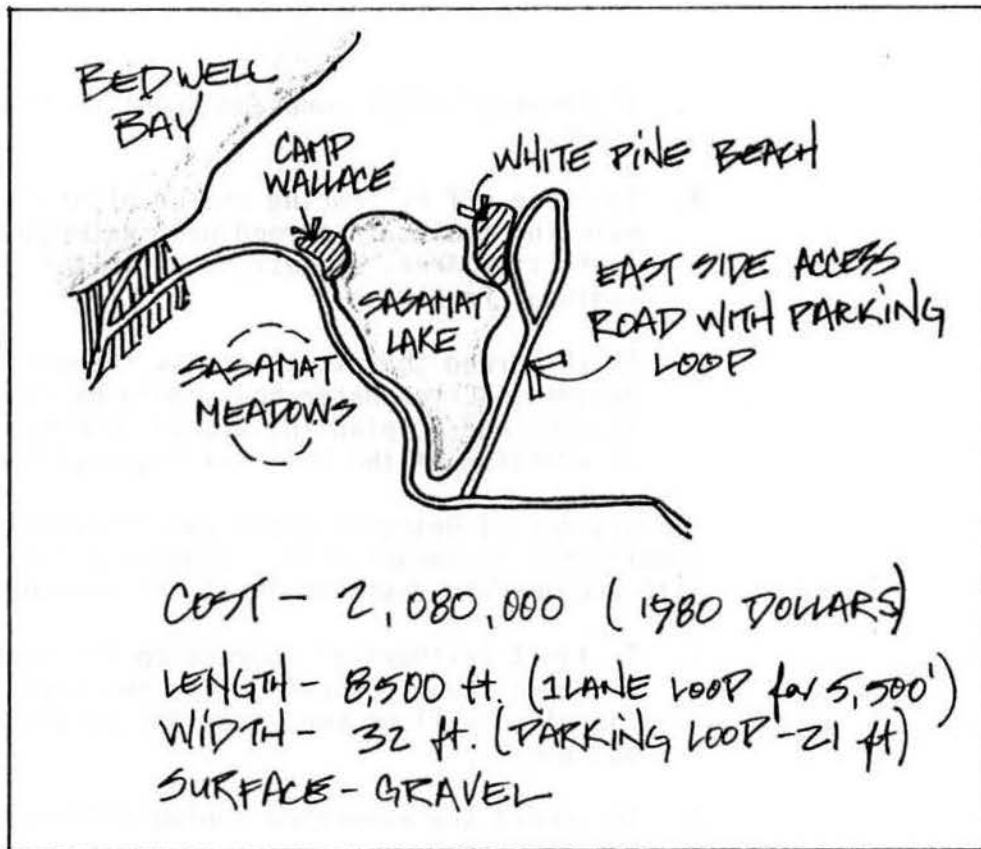 BEDWELL
BAY
CAMP
WALLACE
WHITE PINE BEACH
SASAMAT
LAKE
EAST SIDE ACCESS
ROAD WITH PARKING
LOOP
SASAMAT
MEADOWS
COST - 2,080,000 (1980 DOLLARS)
LENGTH - 8,500 ft. (1 LANE LOOP for 5,500')
WIDTH - 32 ft. (PARKING LOOP - 21 ft)
SURFACE - GRAVEL